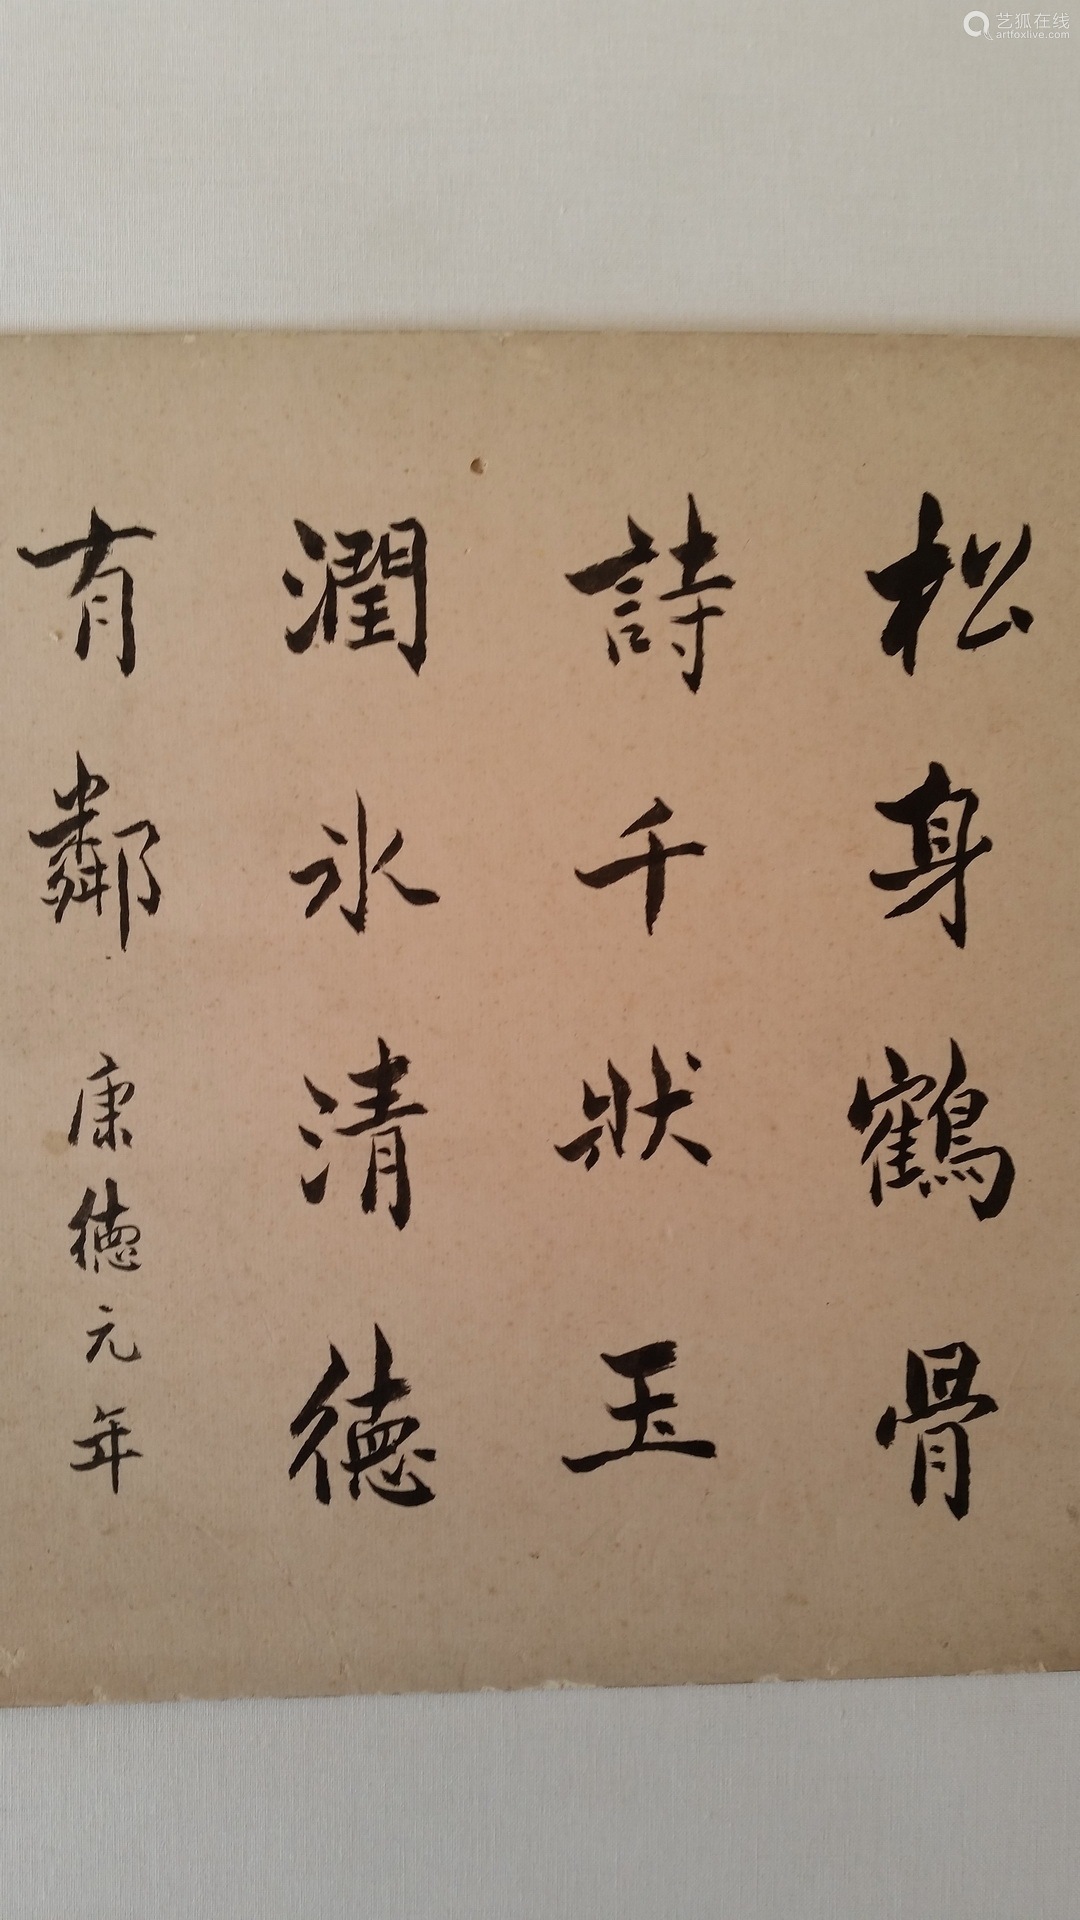 松身鶴骨
詩千狀玉
潤氷清德
有鄰康德元年
艺狐在线
artfoxlive.com